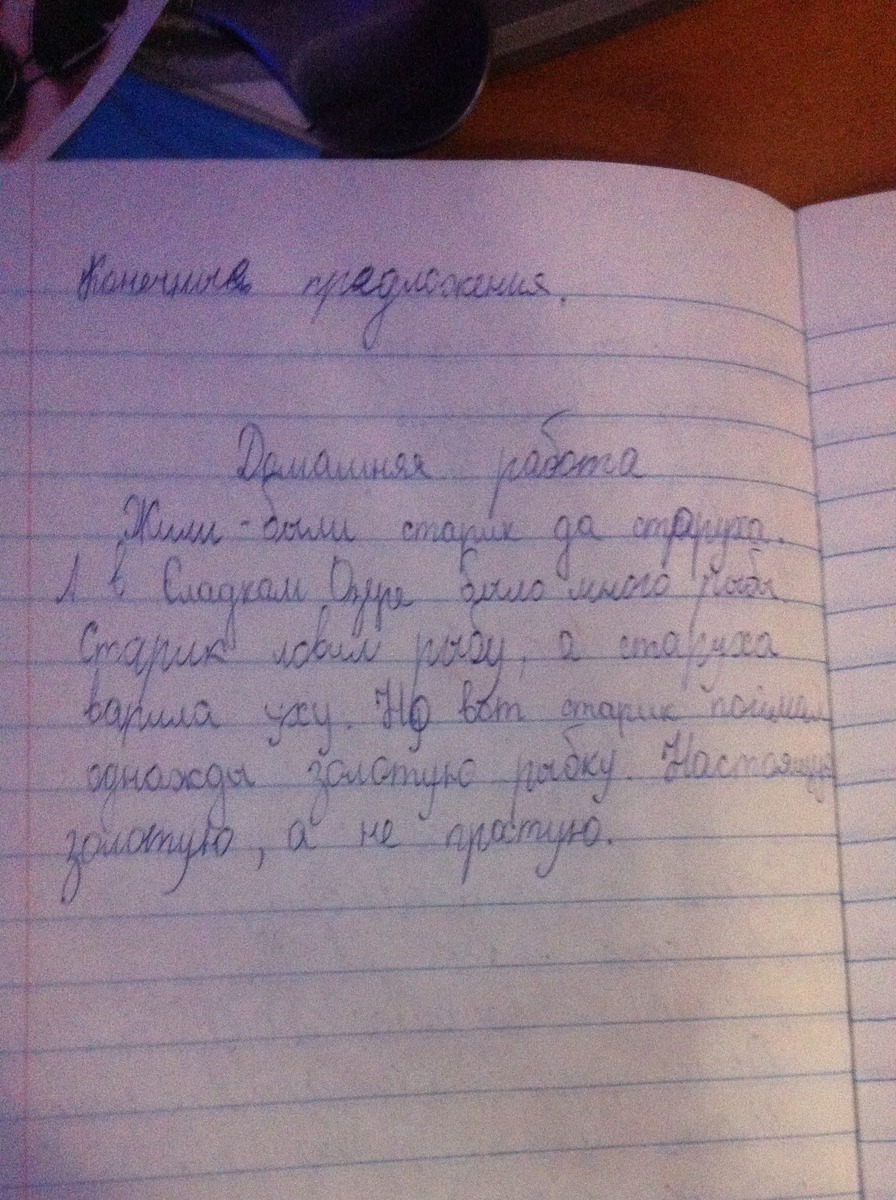 Конечные предложения.
Домашняя работа
Жили-были старик да старуха.
А в Сладком Озере было много рыбы
Старик ловил рыбу, а старуха
варила уху. Но вот старик поймал
однажды золотую рыбку. Настоящую
золотую, а не простую.